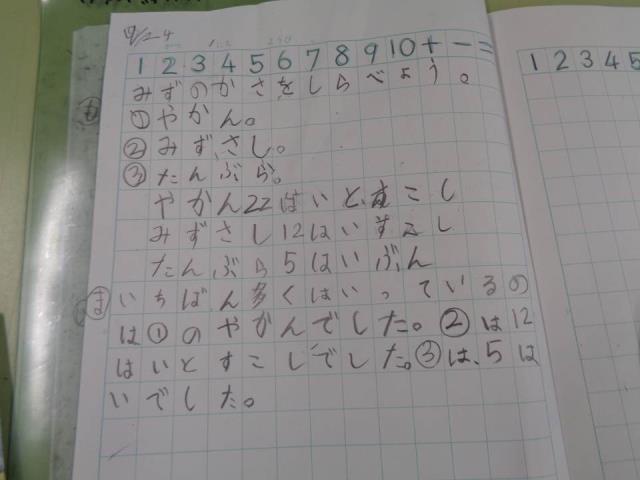 12/24
1 2 3 4 5 6 7 8 9 10 + - =
め みずのかさをしらべよう。
①やかん。
②みずさし。
③たんぶら。
やかん22はいとすこし
みずさし12はいすこし
たんぶら5はいぶん
ま いちばん多くはいっているの
は①のやかんでした。②は12
はいとすこしでした。③は、5は
いでした。
1 2 3 4 5